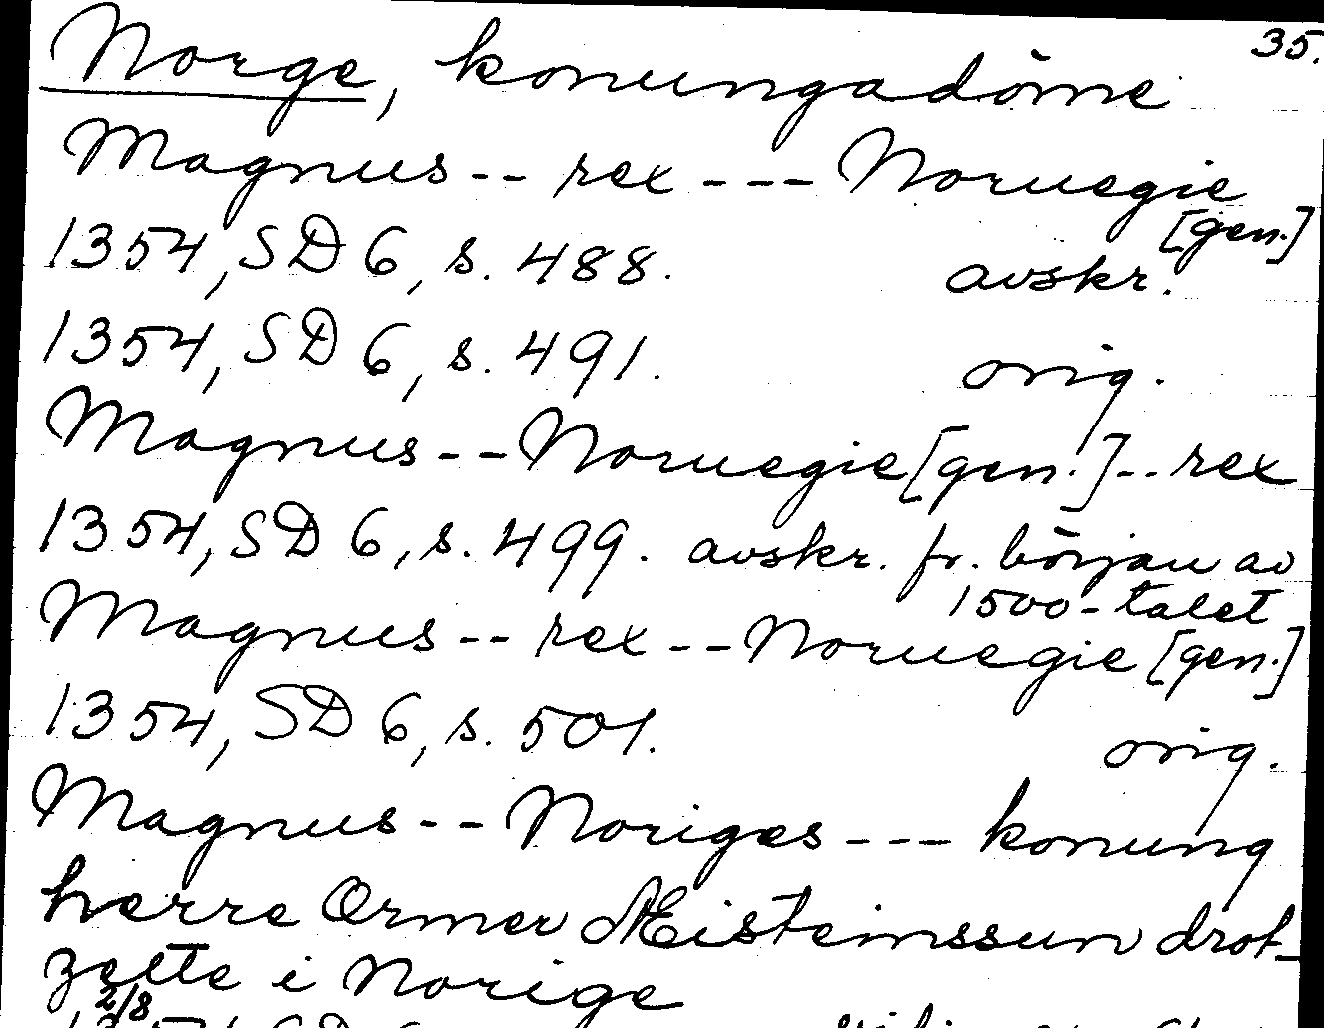 35.
Norge, konungadöme
Magnus -- rex --- Noruegie
[gen.]
1354, SD 6, s. 488. avskr.
1354, SD 6, s. 491. orig.
Magnus -- Noruegie [gen.] -- rex
1354, SD 6, s. 499. avskr. fr. början av
1500-talet
Magnus -- rex -- Noruegie [gen.]
1354, SD 6, s. 501. orig.
Magnus -- Noriges --- konung
herre Ormer Æisteinssun drot-
zsette i Norige
2/8